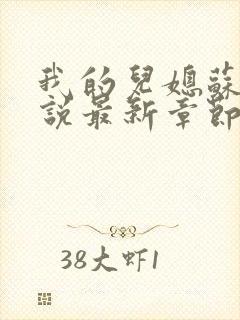 我的兒媳蘇
說最新章節
38大虾1